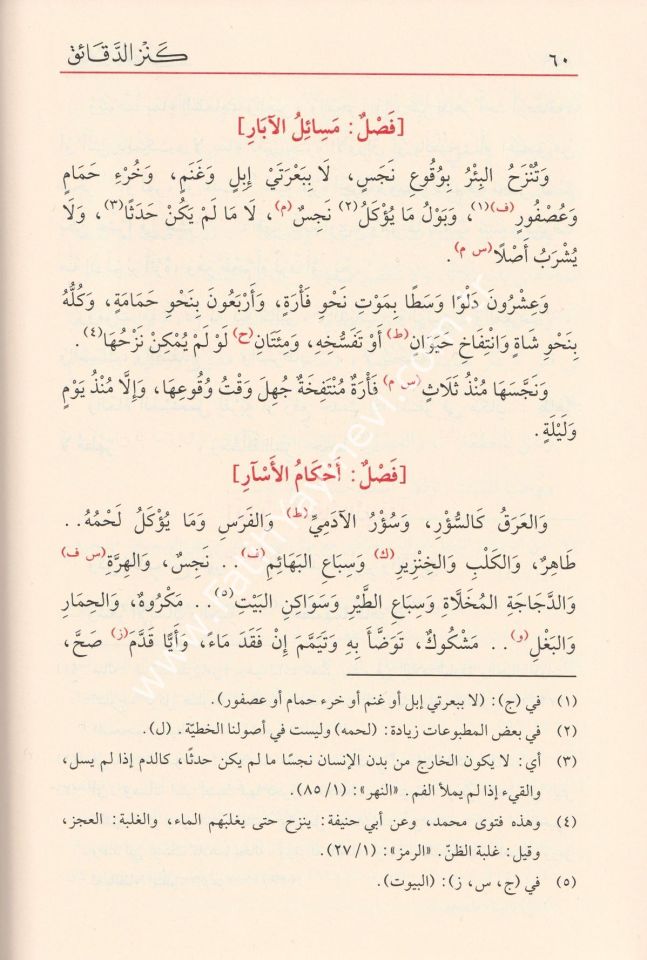 ٦٠ كَنْز الدَّقَائق
[فَصْلٌ: مَسائِلُ الآبَارِ]
وَتُنْزَحُ البِئْرُ بِوُقُوعِ نَجَسٍ، لَا بِبَعْرَتَيْ إِبِلٍ وَغَنَمٍ، وَخُرْءِ حَمَامٍ
وَعُصْفُورٍ (ف)(١)، وَبَوْلُ مَا يُؤْكَلُ(٢) نَجِسٌ(م)، لَا مَا لَمْ يَكُنْ حَدَثًا(٣)، وَلَا
يُشْرَبُ أَصْلًا(س م).
وَعِشْرُونَ دَلْوًا وَسَطًا بِمَوْتِ نَحْوِ فَأْرَةٍ، وَأَرْبَعُونَ بِنَحْوِ حَمَامَةٍ، وَكُلُّهُ
بِنَحْوِ شَاةٍ وَانْتِفَاخِ حَيَوَانٍ(ط) أَوْ تَفَسُّخِهِ، وَمِئَتَانِ(ح) لَوْ لَمْ يُمْكِنْ نَزْحُهَا(٤).
وَنَجَّسَهَا مُنْذُ ثَلَاثٍ(س م) فَأْرَةٌ مُنْتَفِخَةٌ جُهِلَ وَقْتُ وُقُوعِهَا، وَإِلَّا مُنْذُ يَوْمٍ
وَلَيْلَةٍ.
[فَصْلٌ: أَحْكَامُ الأَسْآرِ]
وَالعَرَقُ كَالسُّؤْرِ، وَسُؤْرُ الآدَمِيِّ(ط) وَالفَرَسِ وَمَا يُؤْكَلُ لَحْمُهُ..
طَاهِرٌ، وَالكَلْبِ وَالخِنْزِيرِ(ك) وَسِبَاعِ البَهَائِمِ(ف).. نَجِسٌ، وَالهِرَّةِ(س ف)
وَالدَّجَاجَةِ المُخَلَّاةِ وَسِبَاعِ الطَّيْرِ وَسَوَاكِنِ البَيْتِ(٥).. مَكْرُوهٌ، وَالحِمَارِ
وَالبَغْلِ(و).. مَشْكُوكٌ، تَوَضَّأَ بِهِ وَتَيَمَّمَ إِنْ فَقَدَ مَاءً، وَأَيًّا قَدَّمَ(ز) صَحَّ،
(١) في (ج): (لا ببعرتي إبل أو غنم أو خرء حمام أو عصفور).
(٢) في بعض المطبوعات زيادة: (لحمه) وليست في أصولنا الخطيّة. (ل).
(٣) أي: لا يكون الخارج من بدن الإنسان نجسًا ما لم يكن حدثًا، كالدم إذا لم يسل،
والقيء إذا لم يملأ الفم. «النهر»: (١/ ٨٥).
(٤) وهذه فتوى محمد، وعن أبي حنيفة: ينزح حتى يغلبَهم الماء، والغلبة: العجز،
وقيل: غلبة الظنّ. «الرمز»: (١/ ٢٧).
(٥) في (ج، س، ز): (البيوت).